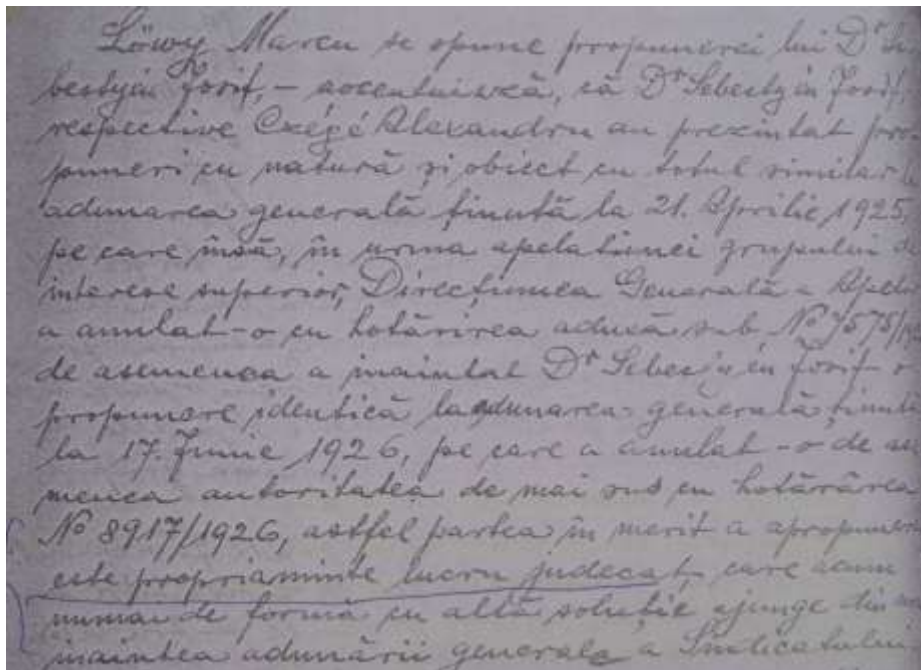 Löwy Marcu se opune propunerei lui Dr Se-
bestyén Josif, – accentuiază, că Dr Sebestyén Josif,
respective Czégé Alexandru au prezintat pro
puneri cu natură și obiect cu totul similar
adunarea generală ținută la 21. Aprilie 1925,
pe care însă, în urma apelațiunei grupului de
interese superior, Direcțiunea Generală a Apelor
a anulat-o cu hotărirea adusă sub No 7575/19
de asemenea a inaintat Dr Sebesyén Josif o
propunere identică la adunarea generală ținută
la 17. Junie 1926, pe care a anulat-o de ase
menea autoritatea de mai sus cu hotărârea
No 8917/1926, astfel partea în merit a apropuner
este propriaminte lucru judecat, care acum
numai de formă cu altă soluție ajunge din
inaintea adunării generale a Sindicatului